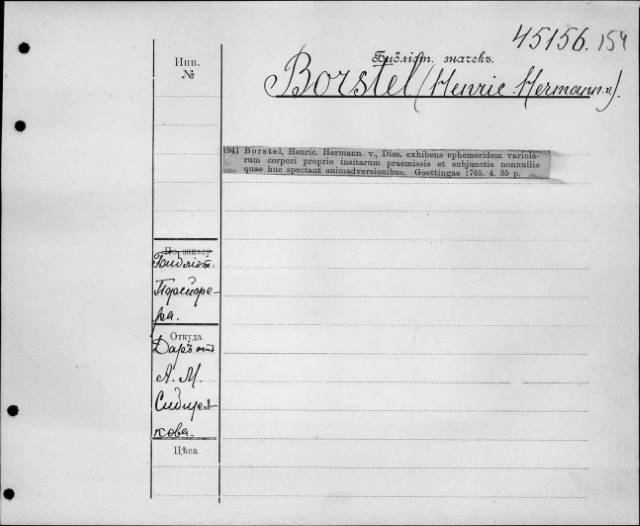 45156. 154
Инв.
№
Библіот. значекъ.
Borstel (Henric. Hermann. v.).
1941 Borstel, Henric. Hermann. v., Diss. exhibens ephemeridem variola-
rum corpori proprio insitarum praemissis et subjunctis nonnullis
quae huc spectant animadversionibus. Goettingae 1765. 4. 35 p.
По заказу
Библіот.
Порейре-
ра.
Откуда
Даръ отъ
А. М.
Сибиря-
кова.
Цѣна